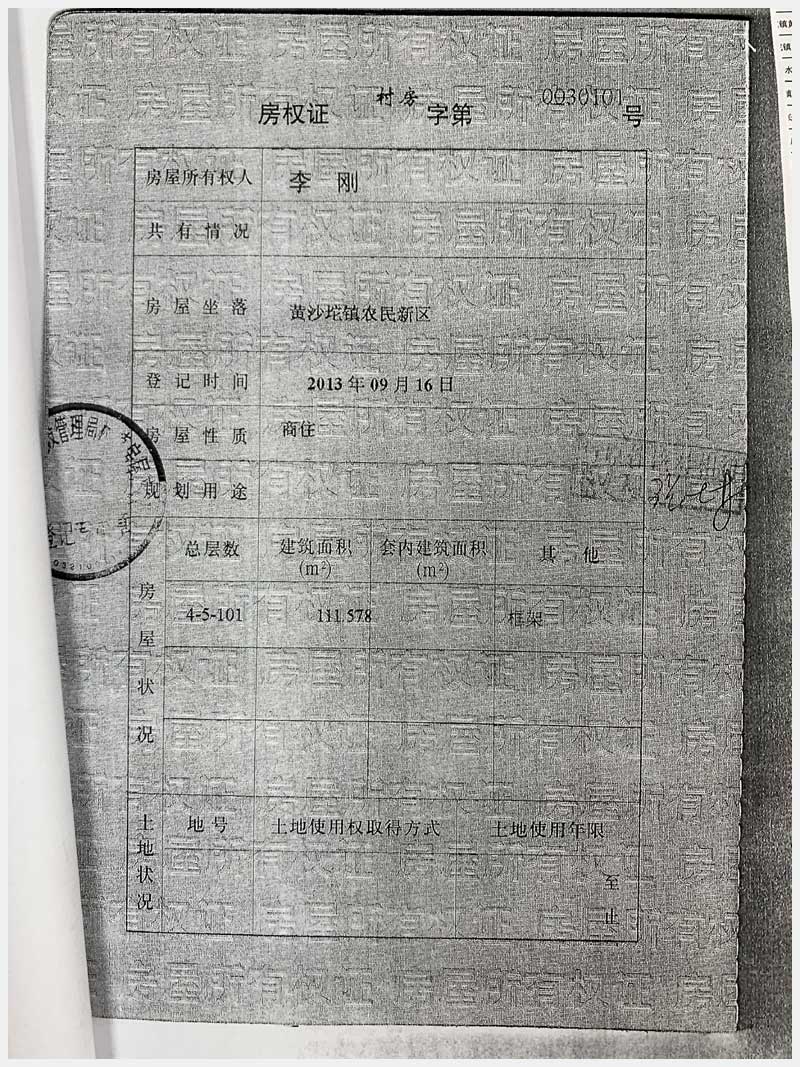 房权证 村房 字第 0030101 号
房屋所有权人 李刚
共有情况
房屋坐落 黄沙坨镇农民新区
登记时间 2013年09月16日
房屋性质 商住
规划用途
房屋状况
总层数 建筑面积(m²) 套内建筑面积(m²) 其他
4-5-101 111.578 框架
土地状况
地号 土地使用权取得方式 土地使用年限
至
止
管理局
登记